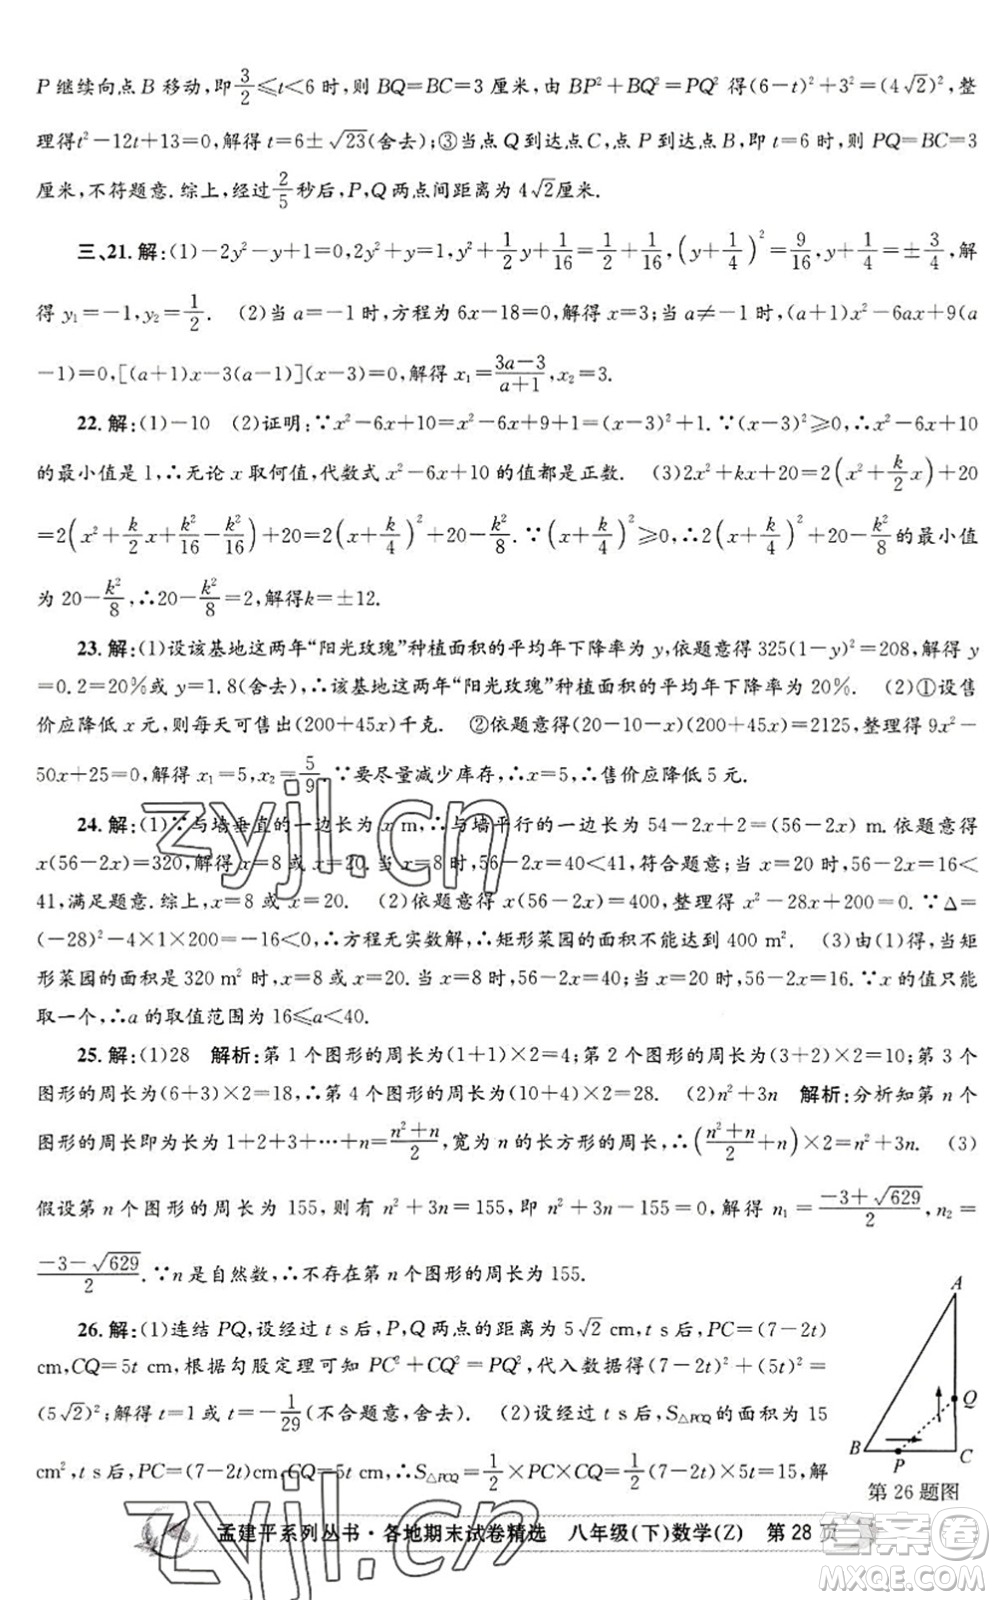 P继续向点B移动,即3/2≤t<6时,则BQ=BC=3厘米,由BP²+BQ²=PQ²得(6-t)²+3²=(4√2)²,整
理得t²-12t+13=0,解得t=6±√23(舍去);③当点Q到达点C,点P到达点B,即t=6时,则PQ=BC=3
厘米,不符题意.综上,经过2/5秒后,P,Q两点间距离为4√2厘米.
三、21.解:(1)-2y²-y+1=0,2y²+y=1,y²+1/2y+1/16=1/2+1/16,(y+1/4)²=9/16,y+1/4=±3/4,解
得y₁=-1,y₂=1/2. (2)当a=-1时,方程为6x-18=0,解得x=3;当a≠-1时,(a+1)x²-6ax+9(a
-1)=0,[(a+1)x-3(a-1)](x-3)=0,解得x₁=(3a-3)/(a+1),x₂=3.
22.解:(1)-10 (2)证明:∵x²-6x+10=x²-6x+9+1=(x-3)²+1.∵(x-3)²≥0,∴x²-6x+10
的最小值是1,∴无论x取何值,代数式x²-6x+10的值都是正数. (3)2x²+kx+20=2(x²+k/2x)+20
=2(x²+k/2x+k²/16-k²/16)+20=2(x+k/4)²+20-k²/8.∵(x+k/4)²≥0,∴2(x+k/4)²+20-k²/8的最小值
为20-k²/8,∴20-k²/8=2,解得k=±12.
23.解:(1)设该基地这两年“阳光玫瑰”种植面积的平均年下降率为y,依题意得325(1-y)²=208,解得y
=0.2=20%或y=1.8(舍去),∴该基地这两年“阳光玫瑰”种植面积的平均年下降率为20%. (2)①设售
价应降低x元,则每天可售出(200+45x)千克. ②依题意得(20-10-x)(200+45x)=2125,整理得9x²-
50x+25=0,解得x₁=5,x₂=5/9.∵要尽量减少库存,∴x=5,∴售价应降低5元.
24.解:(1)∵与墙垂直的一边长为x m,∴与墙平行的一边长为54-2x+2=(56-2x) m.依题意得
x(56-2x)=320,解得x=8或x=20.当x=8时,56-2x=40<41,符合题意;当x=20时,56-2x=16<
41,满足题意.综上,x=8或x=20. (2)依题意得x(56-2x)=400,整理得x²-28x+200=0.∵Δ=
(-28)²-4×1×200=-16<0,∴方程无实数解,∴矩形菜园的面积不能达到400 m². (3)由(1)得,当矩
形菜园的面积是320 m²时,x=8或x=20.当x=8时,56-2x=40;当x=20时,56-2x=16.∵x的值只能
取一个,∴a的取值范围为16≤a<40.
25.解:(1)28 解析:第1个图形的周长为(1+1)×2=4;第2个图形的周长为(3+2)×2=10;第3个
图形的周长为(6+3)×2=18,∴第4个图形的周长为(10+4)×2=28. (2)n²+3n 解析:分析知第n个
图形的周长即为长为1+2+3+…+n=(n²+n)/2,宽为n的长方形的周长,∴((n²+n)/2+n)×2=n²+3n. (3)
假设第n个图形的周长为155,则有n²+3n=155,即n²+3n-155=0,解得n₁=(-3+√629)/2,n₂=
(-3-√629)/2.∵n是自然数,∴不存在第n个图形的周长为155.
26.解:(1)连结PQ,设经过t s后,P,Q两点的距离为5√2 cm,t s后,PC=(7-2t)
cm,CQ=5t cm,根据勾股定理可知PC²+CQ²=PQ²,代入数据得(7-2t)²+(5t)²=
(5√2)²;解得t=1或t=-1/29(不合题意,舍去). (2)设经过t s后,S△PCQ的面积为15
cm²,t s后,PC=(7-2t)cm,CQ=5t cm,∴S△PCQ=1/2×PC×CQ=1/2(7-2t)×5t=15,解
A
Q
B
P
C
第26题图
孟建平系列丛书·各地期末试卷精选 八年级(下)数学(Z) 第28页
zyjl.cn
zyjl.cn
答案圈
MXQE.COM